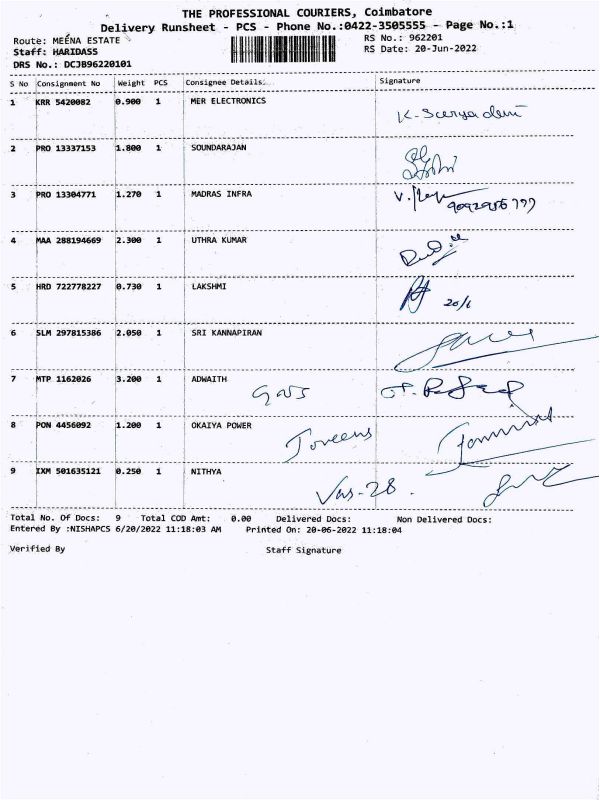 THE PROFESSIONAL COURIERS, Coimbatore
Delivery Runsheet - PCS - Phone No.:0422-3505555 - Page No.:1
Route: MEENA ESTATE RS No.: 962201
Staff: HARIDASS RS Date: 20-Jun-2022
DRS No.: DCJB96220101
S No Consignment No Weight PCS Consignee Details. Signature
1 KRR 5420082 0.900 1 MER ELECTRONICS
K. Suryadevi
2 PRO 13337153 1.800 1 SOUNDARAJAN
3 PRO 13304771 1.270 1 MADRAS INFRA
4 MAA 288194669 2.300 1 UTHRA KUMAR
5 HRD 722778227 0.730 1 LAKSHMI
20/6
6 SLM 297815386 2.050 1 SRI KANNAPIRAN
7 MTP 1162026 3.200 1 ADWAITH
8 PON 4456092 1.200 1 OKAIYA POWER
9 IXM 501635121 0.250 1 NITHYA
Total No. Of Docs: 9 Total COD Amt: 0.00 Delivered Docs: Non Delivered Docs:
Entered By :NISHAPCS 6/20/2022 11:18:03 AM Printed On: 20-06-2022 11:18:04
Verified By Staff Signature